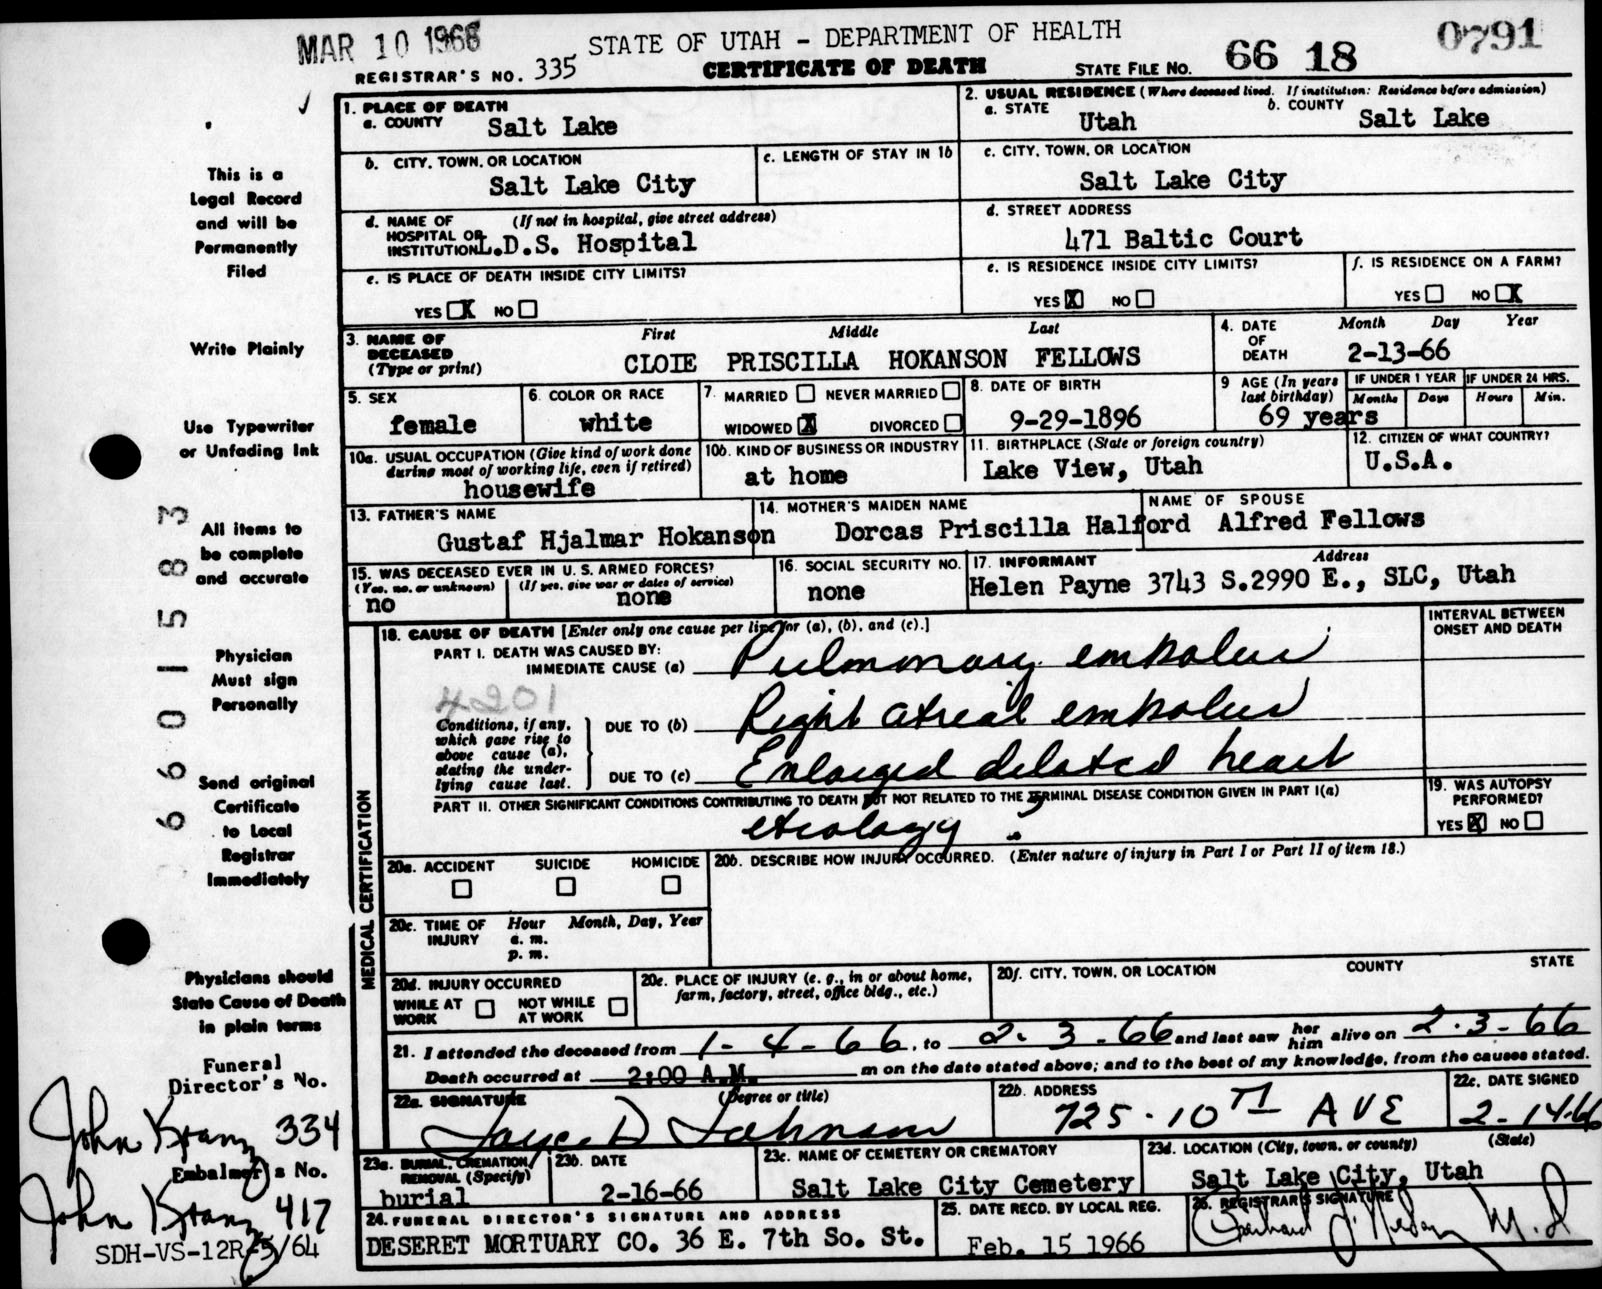 MAR 10 1966 STATE OF UTAH - DEPARTMENT OF HEALTH 0791
REGISTRAR'S NO. 335 CERTIFICATE OF DEATH STATE FILE NO. 66 18
1. PLACE OF DEATH
a. COUNTY Salt Lake
2. USUAL RESIDENCE (Where deceased lived. If institution: Residence before admission)
a. STATE Utah b. COUNTY Salt Lake
b. CITY, TOWN, OR LOCATION Salt Lake City
c. LENGTH OF STAY IN 1b
c. CITY, TOWN, OR LOCATION
Salt Lake City
d. NAME OF HOSPITAL OR INSTITUTION (If not in hospital, give street address)
L.D.S. Hospital
d. STREET ADDRESS
471 Baltic Court
e. IS PLACE OF DEATH INSIDE CITY LIMITS?
YES X NO
e. IS RESIDENCE INSIDE CITY LIMITS?
YES X NO
f. IS RESIDENCE ON A FARM?
YES NO X
3. NAME OF DECEASED (Type or print)
First Middle Last
CLOIE PRISCILLA HOKANSON FELLOWS
4. DATE OF DEATH Month Day Year
2-13-66
5. SEX
female
6. COLOR OR RACE
white
7. MARRIED NEVER MARRIED
WIDOWED X DIVORCED
8. DATE OF BIRTH
9-29-1896
9 AGE (In years last birthday)
69 years
IF UNDER 1 YEAR IF UNDER 24 HRS.
Months Days Hours Min.
10a. USUAL OCCUPATION (Give kind of work done during most of working life, even if retired)
housewife
10b. KIND OF BUSINESS OR INDUSTRY
at home
11. BIRTHPLACE (State or foreign country)
Lake View, Utah
12. CITIZEN OF WHAT COUNTRY?
U.S.A.
13. FATHER'S NAME
Gustaf Hjalmar Hokanson
14. MOTHER'S MAIDEN NAME
Dorcas Priscilla Halford
NAME OF SPOUSE
Alfred Fellows
15. WAS DECEASED EVER IN U. S. ARMED FORCES?
(Yes, no, or unknown) (If yes, give war or dates of service)
no none
16. SOCIAL SECURITY NO.
none
17. INFORMANT Address
Helen Payne 3743 S.2990 E., SLC, Utah
MEDICAL CERTIFICATION
18. CAUSE OF DEATH [Enter only one cause per line for (a), (b), and (c).]
INTERVAL BETWEEN ONSET AND DEATH
PART I. DEATH WAS CAUSED BY:
IMMEDIATE CAUSE (a) Pulmonary embolus
4201
Conditions, if any, which gave rise to above cause (a), stating the underlying cause last.
DUE TO (b) Right atreal embolus
DUE TO (c) Enlarged dilated heart
PART II. OTHER SIGNIFICANT CONDITIONS CONTRIBUTING TO DEATH BUT NOT RELATED TO THE TERMINAL DISEASE CONDITION GIVEN IN PART I(a)
etiology ?
19. WAS AUTOPSY PERFORMED?
YES X NO
20a. ACCIDENT SUICIDE HOMICIDE
20b. DESCRIBE HOW INJURY OCCURRED. (Enter nature of injury in Part I or Part II of item 18.)
20c. TIME OF INJURY Hour Month, Day, Year
a. m.
p. m.
20d. INJURY OCCURRED
WHILE AT WORK NOT WHILE AT WORK
20e. PLACE OF INJURY (e. g., in or about home, farm, factory, street, office bldg., etc.)
20f. CITY, TOWN, OR LOCATION COUNTY STATE
21. I attended the deceased from 1-4-66, to 2-3-66 and last saw her him alive on 2-3-66
Death occurred at 2:00 A.M. m on the date stated above; and to the best of my knowledge, from the causes stated.
22a. SIGNATURE (Degree or title)
22b. ADDRESS
725-10TH AVE
22c. DATE SIGNED
2-14-66
23a. BURIAL, CREMATION, REMOVAL (Specify)
burial
23b. DATE
2-16-66
23c. NAME OF CEMETERY OR CREMATORY
Salt Lake City Cemetery
23d. LOCATION (City, town, or county) (State)
Salt Lake City, Utah
24. FUNERAL DIRECTOR'S SIGNATURE AND ADDRESS
DESERET MORTUARY CO. 36 E. 7th So. St.
25. DATE RECD. BY LOCAL REG.
Feb. 15 1966
26. REGISTRAR'S SIGNATURE
M.D
This is a
Legal Record
and will be
Permanently
Filed
Write Plainly
Use Typewriter
or Unfading Ink
All items to
be complete
and accurate
Physician
Must sign
Personally
Send original
Certificate
to Local
Registrar
Immediately
Physicians should
State Cause of Death
in plain terms
Funeral
Director's No.
John 334
Embalmer's No.
John 417
SDH-VS-12R-5/64
6601583